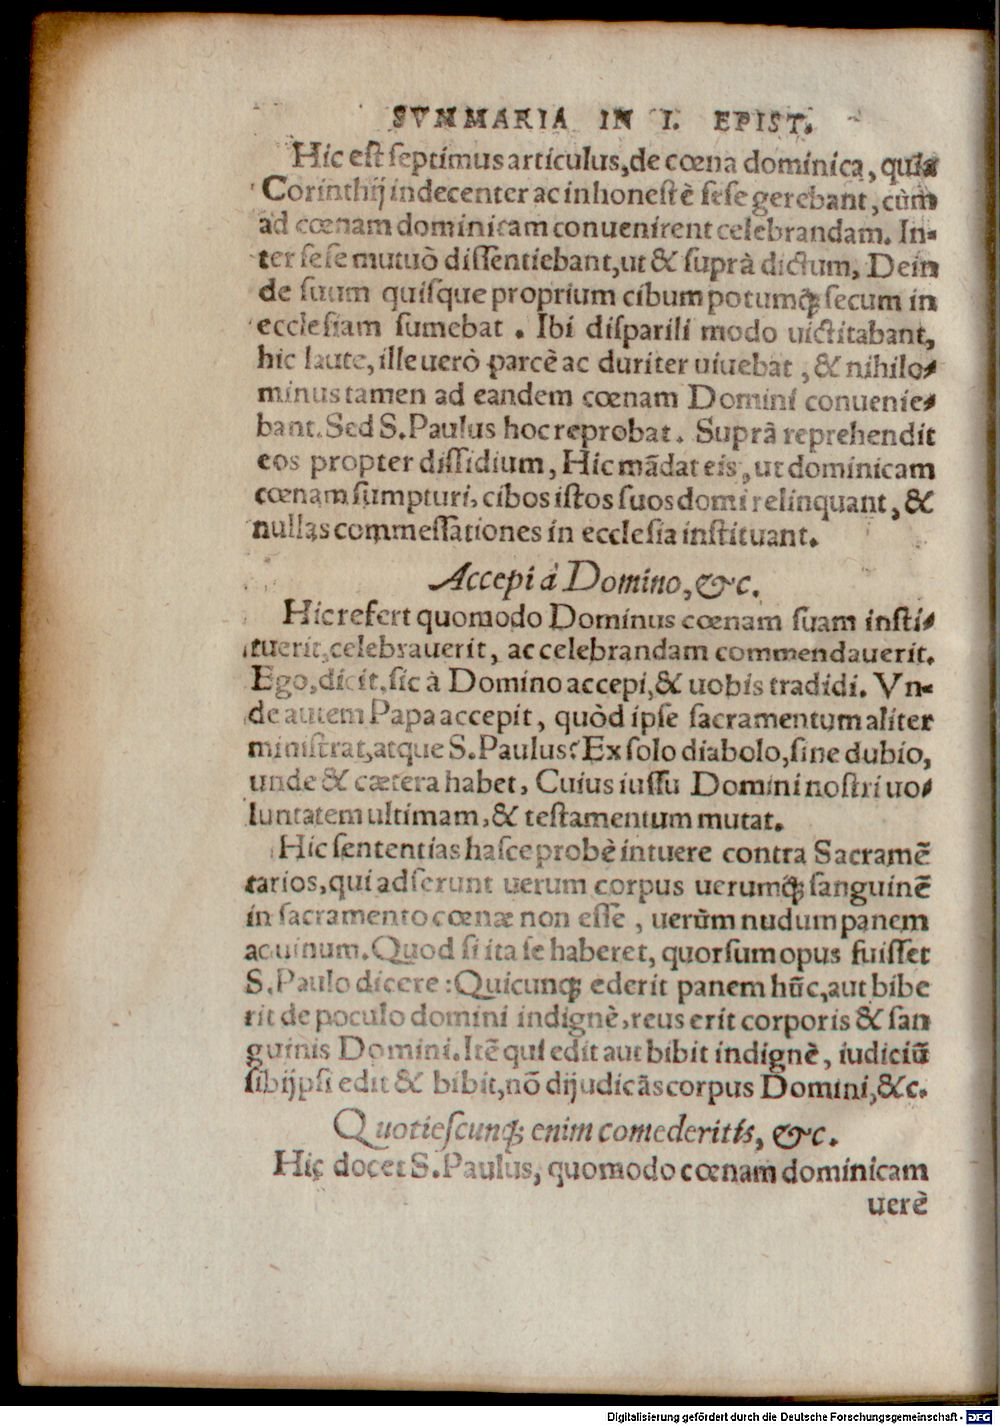 SVMMARIA IN I. EPIST.
Hic est septimus articulus, de cœna dominica, quia
Corinthij indecenter ac inhonestè sese gerebant, cùm
ad cœnam dominicam conuenirent celebrandam. In-
ter sese mutuò dissentiebant, ut & suprà dictum, Dein
de suum quisque proprium cibum potumq́; secum in
ecclesiam sumebat. Ibi disparili modo uictitabant,
hic laute, ille uerò parcè ac duriter uiuebat, & nihilo-
minus tamen ad eandem cœnam Domini conuenie-
bant. Sed S. Paulus hoc reprobat. Suprà reprehendit
eos propter dissidium, Hic mãdat eis, ut dominicam
cœnam sumpturi, cibos istos suos domi relinquant, &
nullas commessationes in ecclesia instituant.
Accepi à Domino, &c.
Hic refert quomodo Dominus cœnam suam insti-
tuerit, celebrauerit, ac celebrandam commendauerit.
Ego, dicit, sic à Domino accepi, & uobis tradidi. Vn-
de autem Papa accepit, quòd ipse sacramentum aliter
ministrat, atque S. Paulus? Ex solo diabolo, sine dubio,
unde & cætera habet, Cuius iussu Domini nostri uo-
luntatem ultimam, & testamentum mutat.
Hic sententias hasce probè intuere contra Sacramẽ
tarios, qui adserunt uerum corpus uerumq́; sanguinẽ
in sacramento cœnæ non esse, uerùm nudum panem
ac uinum. Quod si ita se haberet, quorsum opus fuisset
S. Paulo dicere: Quicunq; ederit panem hũc, aut bibe
rit de poculo domini indignè, reus erit corporis & san
guinis Domini. Itẽ qui edit aut bibit indignè, iudiciũ
sibijpsi edit & bibit, nõ dijudicãs corpus Domini, &c.
Quotiescunq; enim comederitis, &c.
Hic docet S. Paulus, quomodo cœnam dominicam
uerè
Digitalisierung gefördert durch die Deutsche Forschungsgemeinschaft - DFG